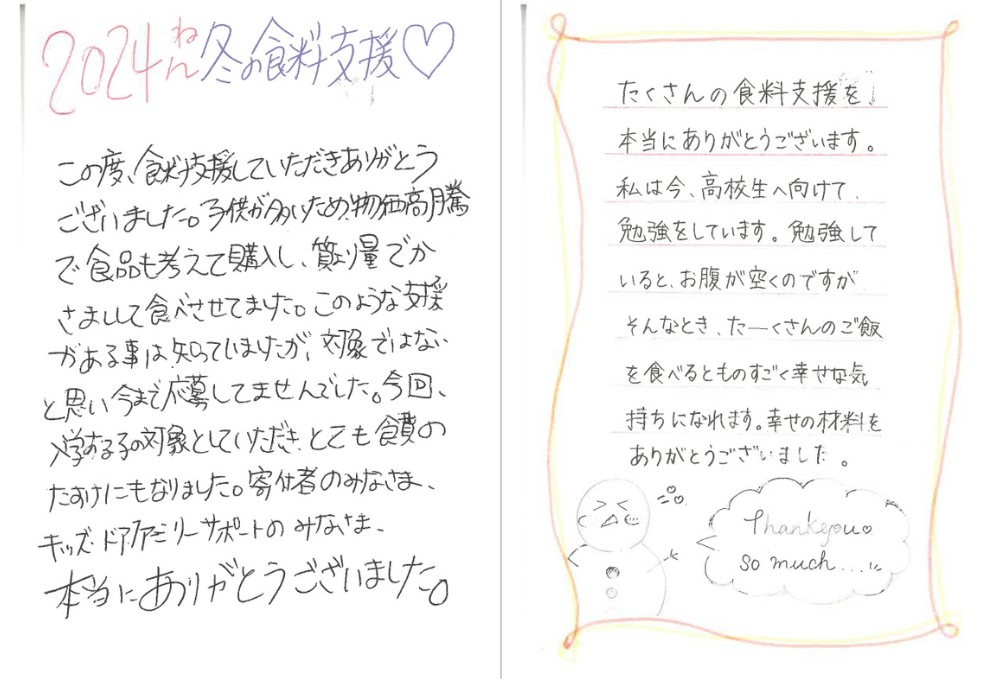 2024ねん冬の食料支援♡
この度、食料支援していただきありがとう
ございました。子供が多いため、物価高騰
で食品も考えて購入し、質より量でか
さましして食べさせてました。このような支援
がある事は知っていましたが、対象ではない
と思い今まで応募してませんでした。今回、
入学する子の対象としていただき、とても食費の
たすけにもなりました。寄付者のみなさま、
キッズドアファミリーサポートのみなさま、
本当にありがとうございました。
たくさんの食料支援を、
本当にありがとうございます。
私は今、高校生へ向けて、
勉強をしています。勉強して
いると、お腹が空くのですが
そんなとき、たーくさんのご飯
を食べるとものすごく幸せな気
持ちになれます。幸せの材料を
ありがとうございました。
Thankyou
so much....